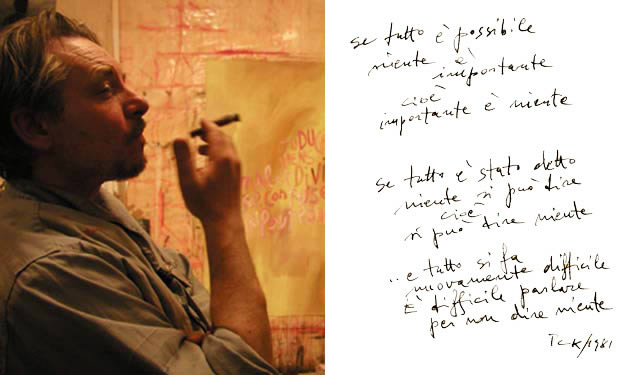 se tutto è possibile
niente è importante
cioè
importante è niente
se tutto è stato detto
niente si può dire
cioè
si può dire niente
..e tutto si fa
nuovamente difficile
È difficile parlare
per non dire niente
TCK/1981
DIVE